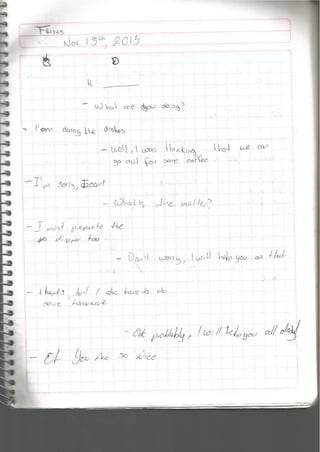 Friday
Nov 13th, 2015
B D
Hi ______
- What are you doing?
- I'am doing the dishes
- Well, I was thinking that we can
go out for some coffee
- I'm sorry, I can't
- What is the matter?
- I must prepare the
dinner too
- Don't worry, I will help you on that
- thanks, but I also have to do
some homework
- Ok , I will help you all day!
- you are so nice